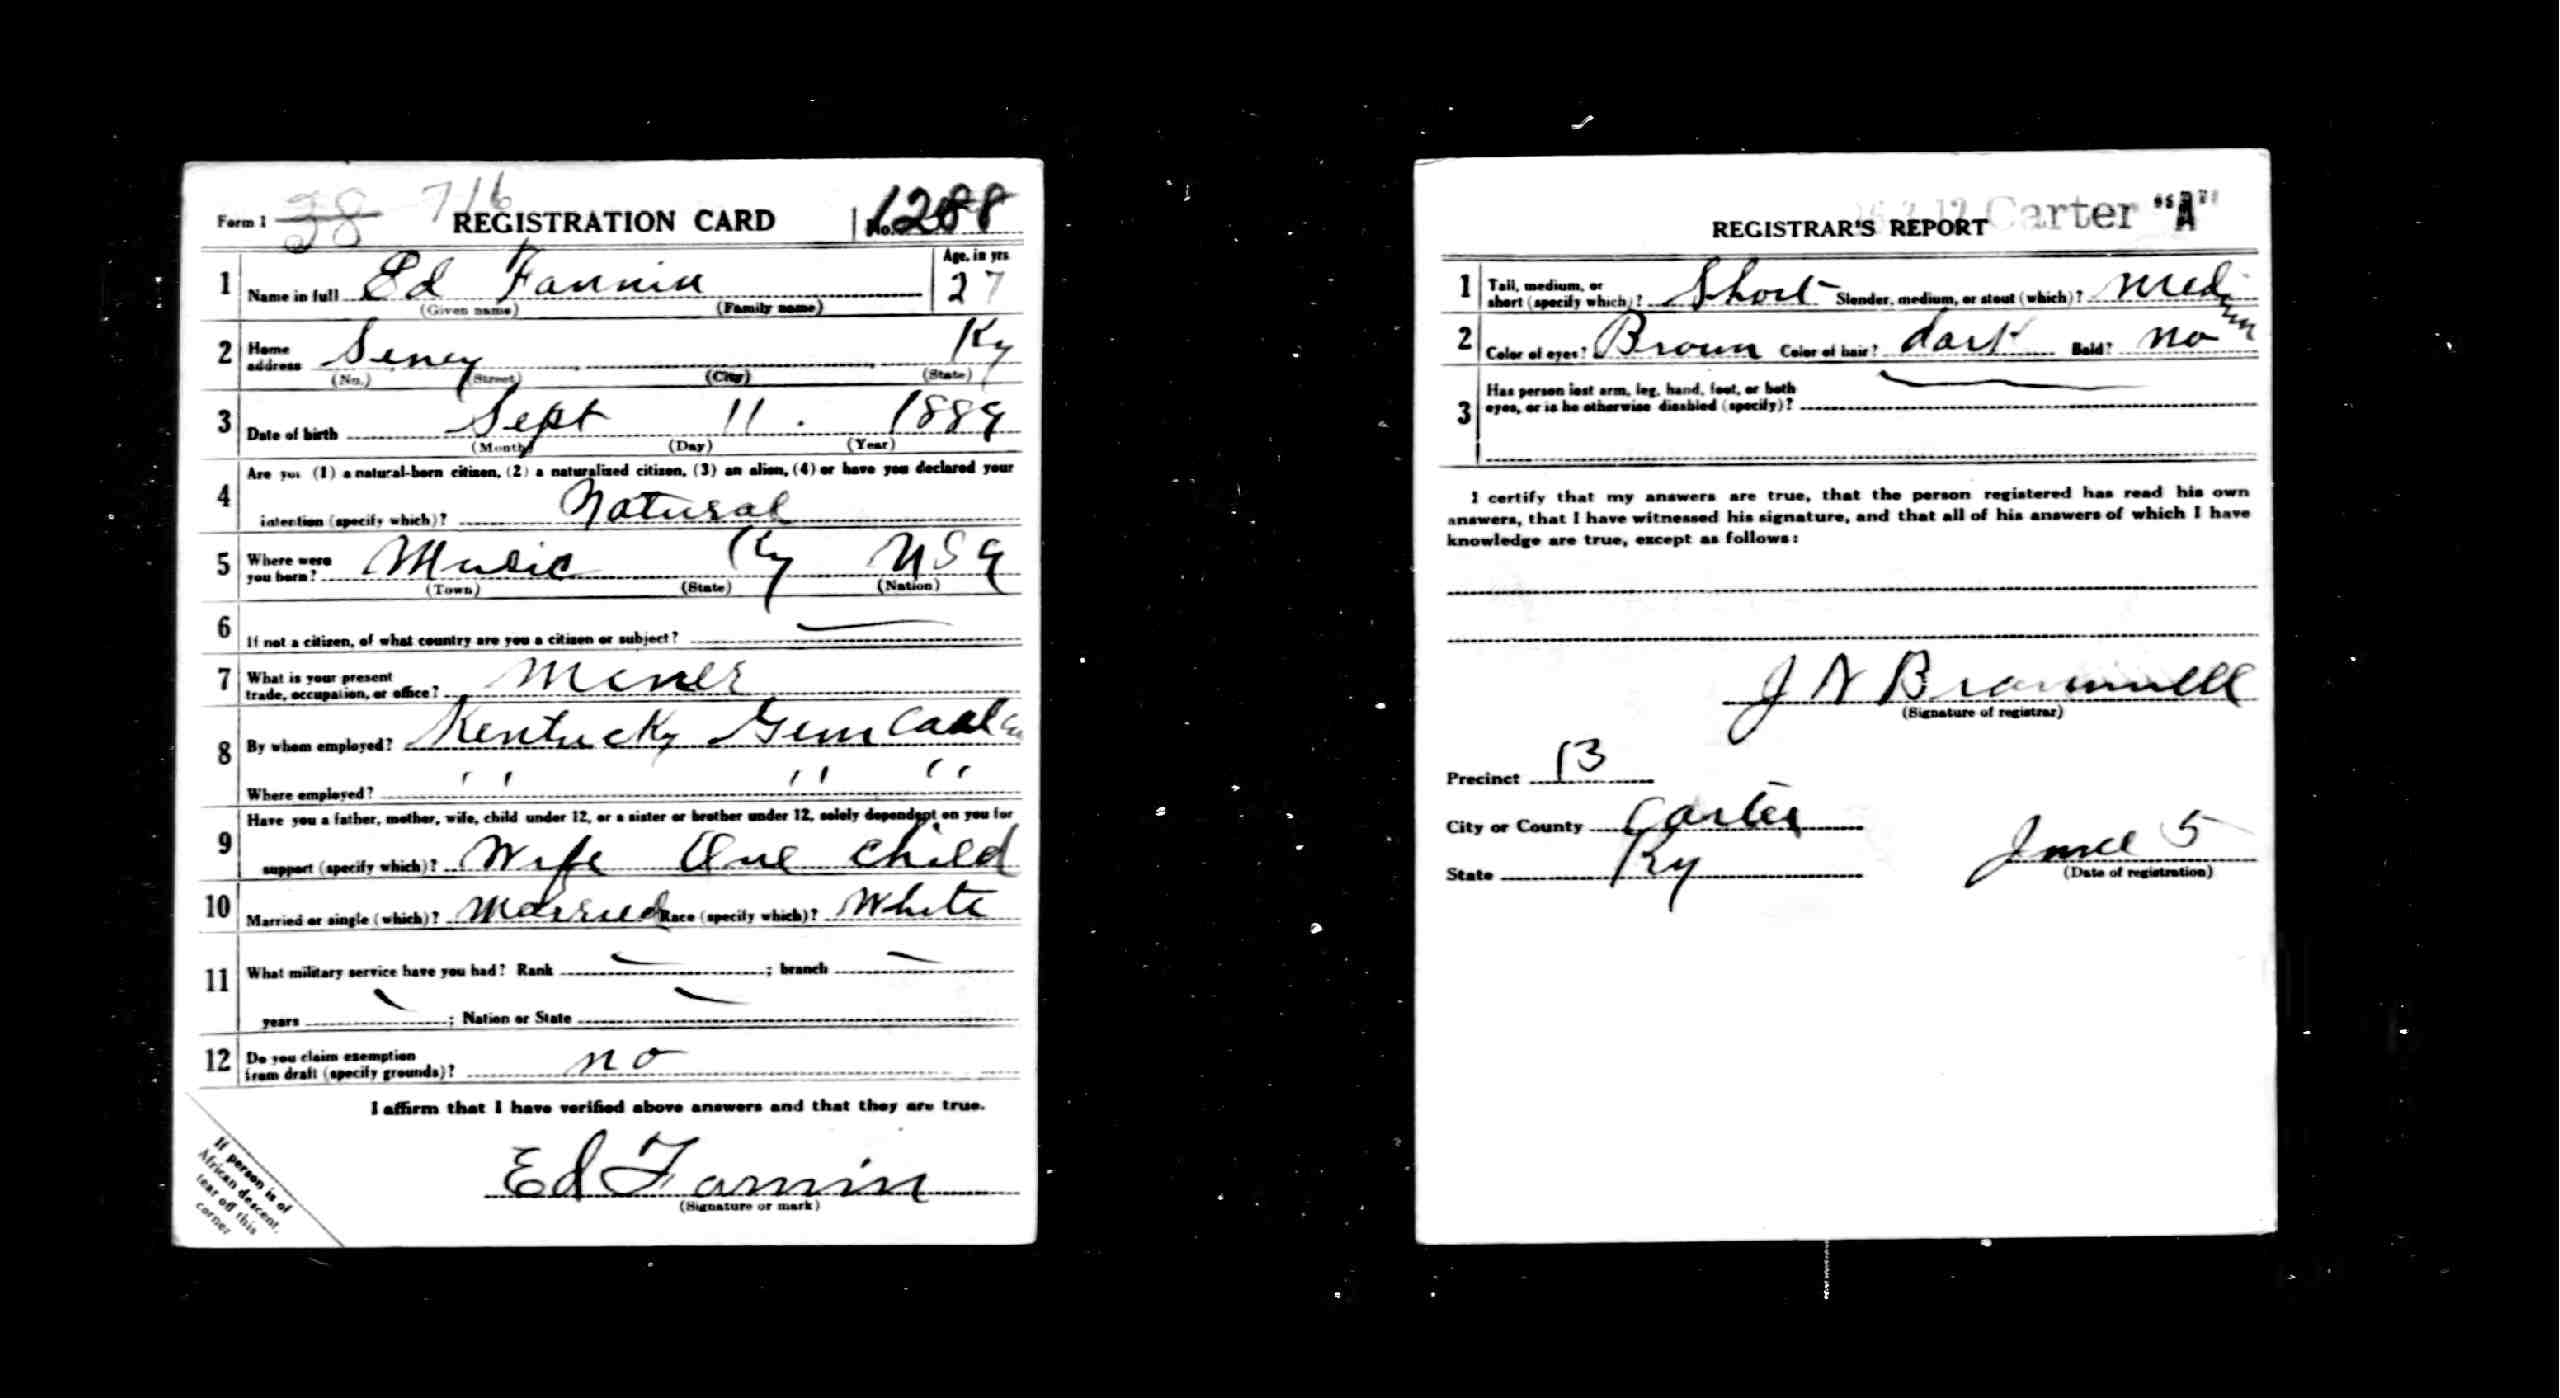 Form 1 38 716 REGISTRATION CARD No. 1288
1 Name in full Ed Fannin Age, in yrs 27
(Given name) (Family name)
2 Home address Seney Ky
(No.) (Street) (City) (State)
3 Date of birth Sept 11 . 1889
(Month) (Day) (Year)
4 Are you (1) a natural-born citizen, (2) a naturalized citizen, (3) an alien, (4) or have you declared your
intention (specify which)? Natural
5 Where were you born? Music Ky USA
(Town) (State) (Nation)
6 If not a citizen, of what country are you a citizen or subject?
7 What is your present trade, occupation, or office? Miner
8 By whom employed? Kentucky Gem Coal Co
Where employed? " " "
9 Have you a father, mother, wife, child under 12, or a sister or brother under 12, solely dependent on you for
support (specify which)? Wife One child
10 Married or single (which)? Married Race (specify which)? White
11 What military service have you had? Rank ; branch
years ; Nation or State
12 Do you claim exemption from draft (specify grounds)? no
I affirm that I have verified above answers and that they are true.
Ed Fannin
(Signature or mark)
If person is of
African descent,
tear off this
corner
Carter "A"
REGISTRAR'S REPORT
1 Tall, medium, or short (specify which)? Short Slender, medium, or stout (which)? medium
2 Color of eyes? Brown Color of hair? dark Bald? no
3 Has person lost arm, leg, hand, foot, or both
eyes, or is he otherwise disabled (specify)?
I certify that my answers are true, that the person registered has read his own
answers, that I have witnessed his signature, and that all of his answers of which I have
knowledge are true, except as follows:
J N Brammell
(Signature of registrar)
Precinct 13
City or County Carter
State Ky June 5
(Date of registration)